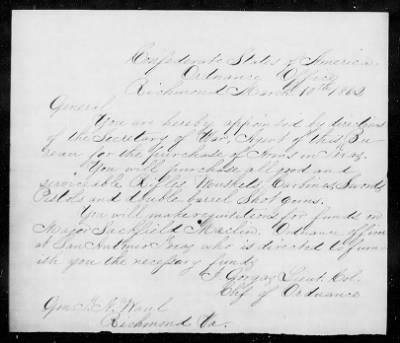 Confederate States of America.
Ordnance Office
Richmond March 10th 1862
General
You are hereby appointed by direction
of the Secretary of War, Agent of this Bu-
reau for the purchase of Arms in Texas.
You will purchase all good and
serviceable Rifles, Muskets, Carbines, Swords
Pistols and Double barrel Shot guns.
You will make requisitions for funds on
Major Sackfield Maclin. Ordnance officer
at San Antonio Texas who is directed to furn-
ish you the necessary funds
J. Gorgas Lieut. Col.
Chf of Ordnance
Gen. Waul
Richmond Va.